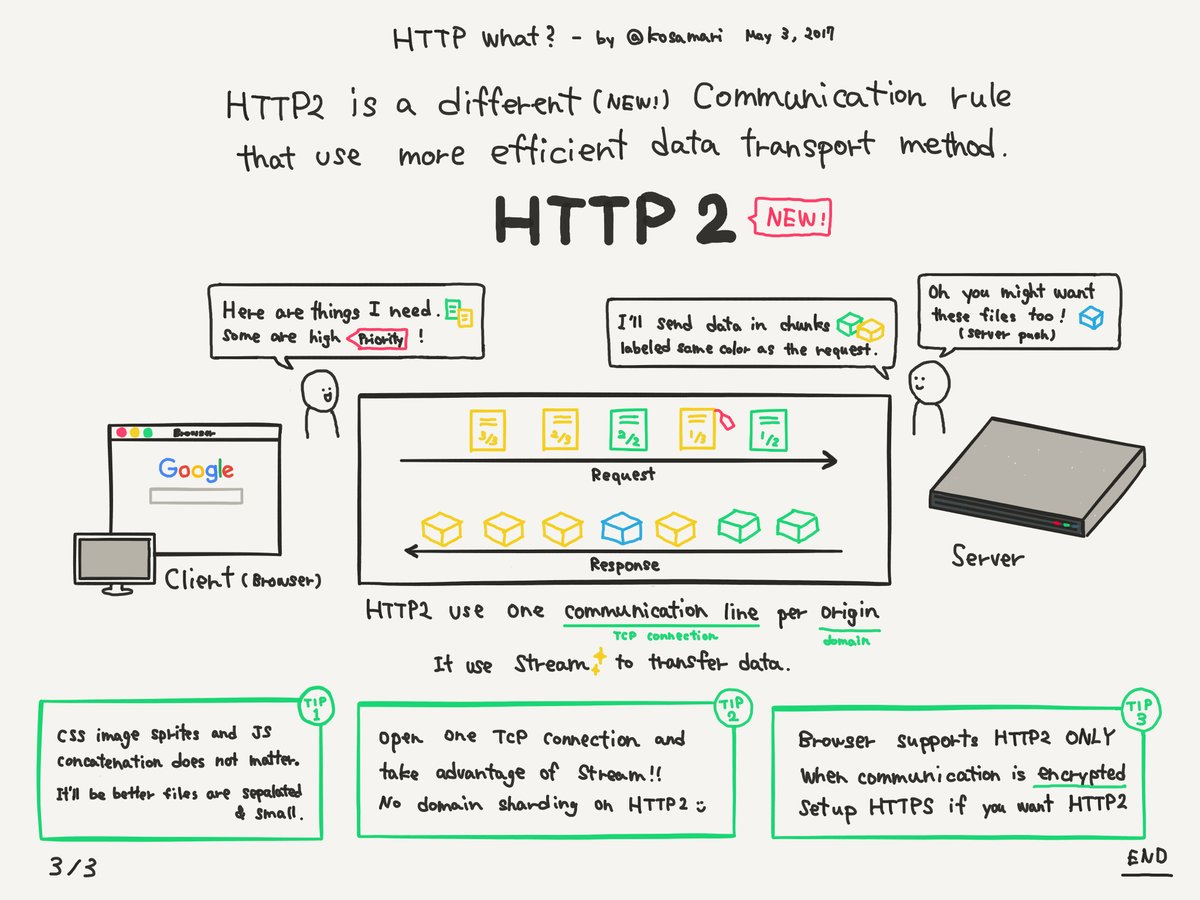 HTTP what? - by @kosamari May 3, 2017
HTTP2 is a different (NEW!) Communication rule
that use more efficient data transport method.
HTTP 2
NEW!
Here are things I need.
Some are high Priority !
I'll send data in chunks
labeled same color as the request.
Oh you might want
these files too!
(server push)
Browser
Google
3/3
2/3
2/2
1/3
1/2
Request
Response
Client (Browser)
Server
HTTP2 use one communication line per origin
TCP connection
domain
It use Stream to transfer data.
TIP
1
CSS image sprites and JS
concatenation does not matter.
It'll be better files are sepalated
& small.
TIP
2
Open one TCP connection and
take advantage of Stream!!
No domain sharding on HTTP2
TIP
3
Browser supports HTTP2 ONLY
when communication is encrypted
Setup HTTPS if you want HTTP2
3/3
END